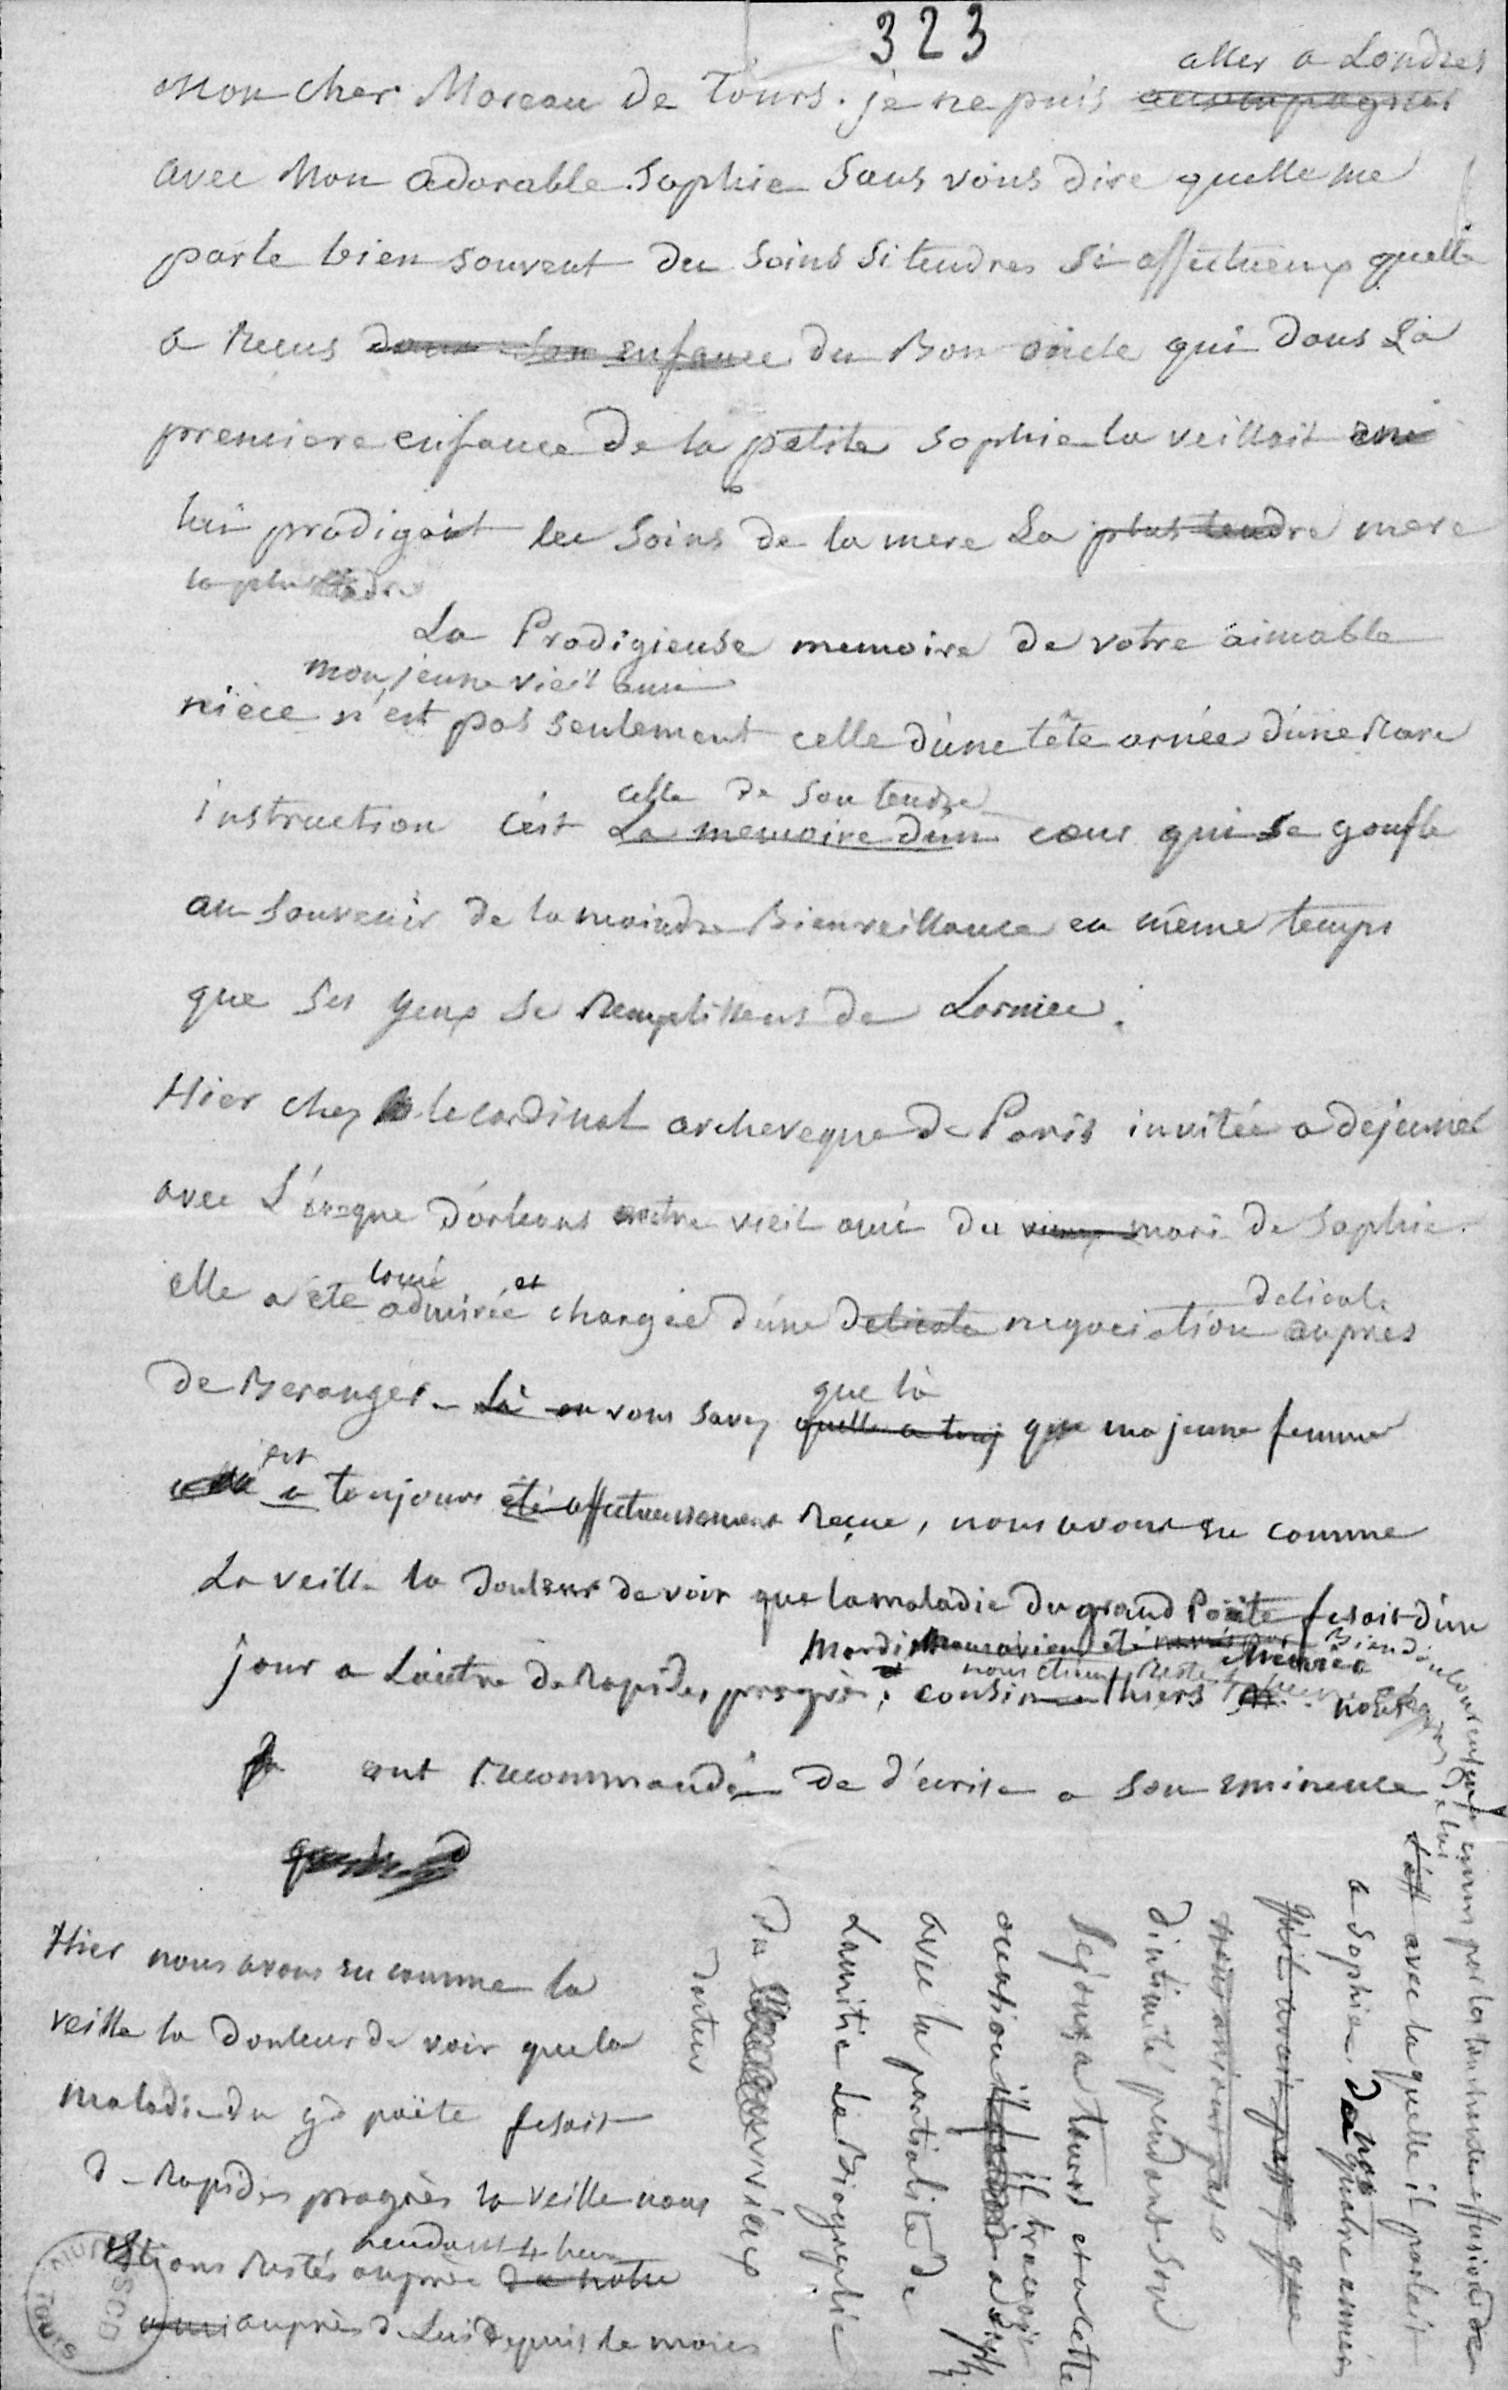 323
aller a Londres
Mon cher Moreau de Tours. je ne puis accompagner
avec Mon adorable Sophie Sans vous dire quelle me
parle bien souvent des Soins Si tendres Si affectueux quelle
a Recus dans son enfance du Bon oncle qui dans La
premiere enfance de la petite Sophie la veilloit
lui prodigait les Soins de la mere La plus tendre mere
la plus tendre
La Prodigieuse memoire de votre aimable
mon jeune vieil ami
nièce n'est pas seulement celle d'une tête ornée d'une Rare
celle de Son tendre
instruction c'est La memoire d'un cœur qui se gonfle
au Souvenir de la moindre Bienveillance en même temps
que Ses yeux Se Remplissent de Larmes.
Hier chez le cardinal archeveque de Paris invitée a dejeuner
avec L'éveque d'orleans vieil ami du vieux mari de Sophie.
loué et delicate
elle a été admirée chargée d'une delicate negociation aupres
que là
de Beranger. Là ou vous savez quelle a touj que ma jeune femme
est
a toujours été affectueusement Reçue, nous avons eu comme
La veille la Douleur de voir que la maladie du grand Poëte fesoit d'un
Mardi nous avions été
jour a L'autre de Rapides progrès, cousin Thiers nous
ont Recommandé de d'écrire a Son eminence
Hier nous avons eu comme la
veille la Douleur de voir que la
Maladie du gd poëte fesoit
de Rapides progrès la veille nous
pendant 4 heures
etions Restés auprès de notre
ami auprès de Lui depuis le mois
emus par les touchantes effusions de
avec la quelle il parlait
a Sophie de nos quatre années
qu'il avait passé que
nous avions pas
d'intimité pendant Son
Sejour a Tours et a cette
occasion il tracoit
avec la partialité de
L'amitié La Biographie
du vieux
docteur